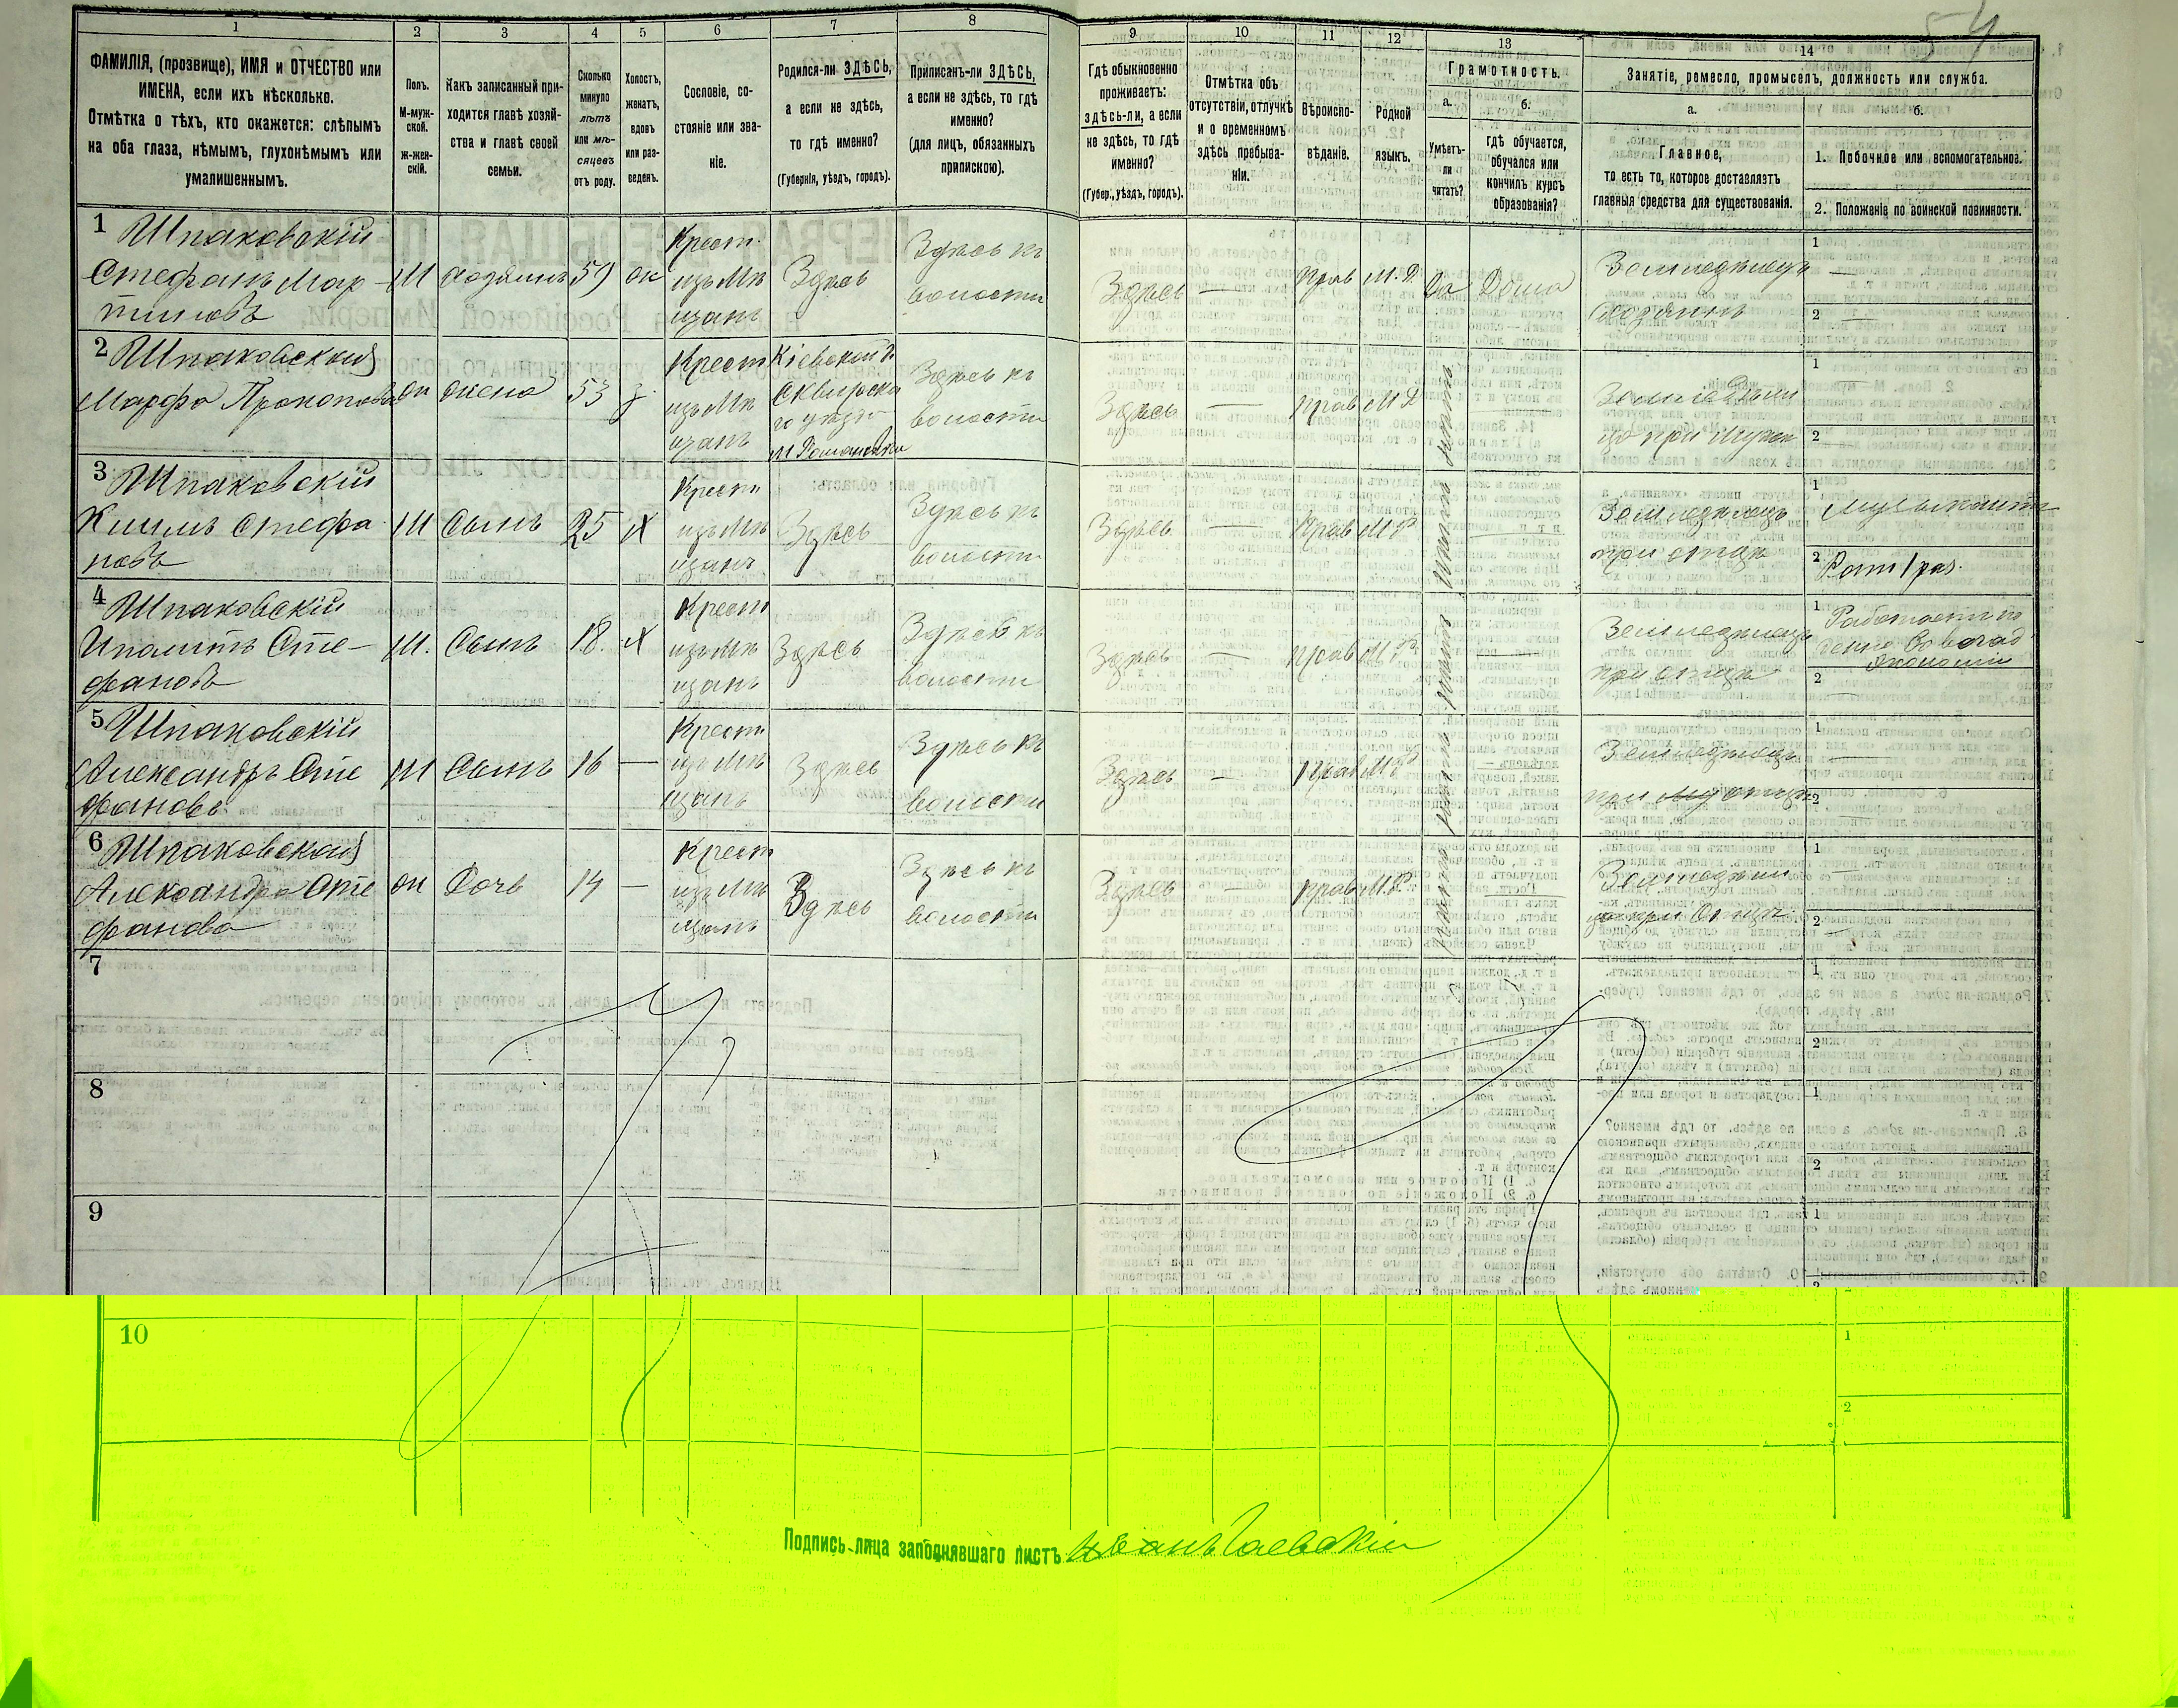 54
1 2 3 4 5 6 7 8 9 10 11 12 13 14
ФАМИЛІЯ, (прозвище), ИМЯ и ОТЧЕСТВО или
ИМЕНА, если ихъ нѣсколько.
Отмѣтка о тѣхъ, кто окажется: слѣпымъ
на оба глаза, нѣмымъ, глухонѣмымъ или
умалишеннымъ.
Полъ.
М-муж-
ской.
ж-жен-
скій.
Какъ записанный при-
ходится главѣ хозяй-
ства и главѣ своей
семьи.
Сколько
минуло
лѣтъ
или мѣ-
сяцевъ
отъ роду.
Холостъ,
женатъ,
вдовъ
или раз-
веденъ.
Сословіе, со-
стояніе или зва-
ніе.
Родился-ли ЗДѢСЬ,
а если не здѣсь,
то гдѣ именно?
(Губернія, уѣздъ, городъ).
Приписанъ-ли ЗДѢСЬ,
а если не здѣсь, то гдѣ
именно?
(для лицъ, обязанныхъ
припискою).
Гдѣ обыкновенно
проживаетъ:
здѣсь-ли, а если
не здѣсь, то гдѣ
именно?
(Губер., уѣздъ, городъ).
Отмѣтка объ
отсутствіи, отлучкѣ
и о временномъ
здѣсь пребыва-
ніи.
Вѣроиспо-
вѣданіе.
Родной
языкъ.
Грамотность.
а.
Умѣетъ-
ли
читать?
б.
гдѣ обучается,
обучался или
кончилъ курсъ
образованія?
Занятіе, ремесло, промыселъ, должность или служба.
а.
Главное,
то есть то, которое доставляэтъ
главныя средства для существованія.
б.
1. Побочное или вспомогательное.
2. Положеніе по воинской повинности.
1 Шпаковскій
Стефанъ Мар-
тиновъ
М хозяинъ 59
Крест.
изъ Мѣ
щанъ
Здѣсь
Здѣсь къ
волости
Здѣсь — прав М. Р. Да Дома
Земледѣлецъ
хозяинъ
1 —
2 —
2 Шпаковская
Марфа Прокопова
жена 53 з
Крест
изъ Мѣ
щанъ
Кіевской г.
Сквирска
го уѣзд
м Романовки
Здѣсь къ
волости
Здѣсь — прав М Р
при мужѣ
1
2
3 Шпаковскій
Стефа
новъ
М Сынъ 25 Х
Крест
изъ Мѣ
щанъ
Здѣсь
Здѣсь къ
волости
Здѣсь — прав М Р
Земледѣлецъ
при отцѣ
1 Музыкантъ
2 Рат 1 раз.
4 Шпаковскій
Ипалитъ Сте-
фановъ
М. Сынъ 18. Х
Крест
изъ Мѣ
щанъ
Здѣсь
Здѣсь къ
волости
Здѣсь — прав М Р
Земледѣлецъ
при отцѣ
1 Работаетъ по
Экономіи
2 —
5 Шпаковскій
Александръ Сте
фановъ
М Сынъ 16 —
Крест
изъ Мѣ
щанъ
Здѣсь
Здѣсь къ
волости
Здѣсь — прав М Р
Земледѣлецъ
при отцѣ
1 —
2 —
6 Шпаковская
Александра Сте
фанова
Дочь 14 —
Крест
изъ Мѣ
щанъ
Здѣсь
Здѣсь къ
волости
Здѣсь — прав М. Р.
при Отцѣ
1 —
2 —
7
1
2
8
1
2
9
1
2
10
1
2
Подпись лица заполнявшаго листъ